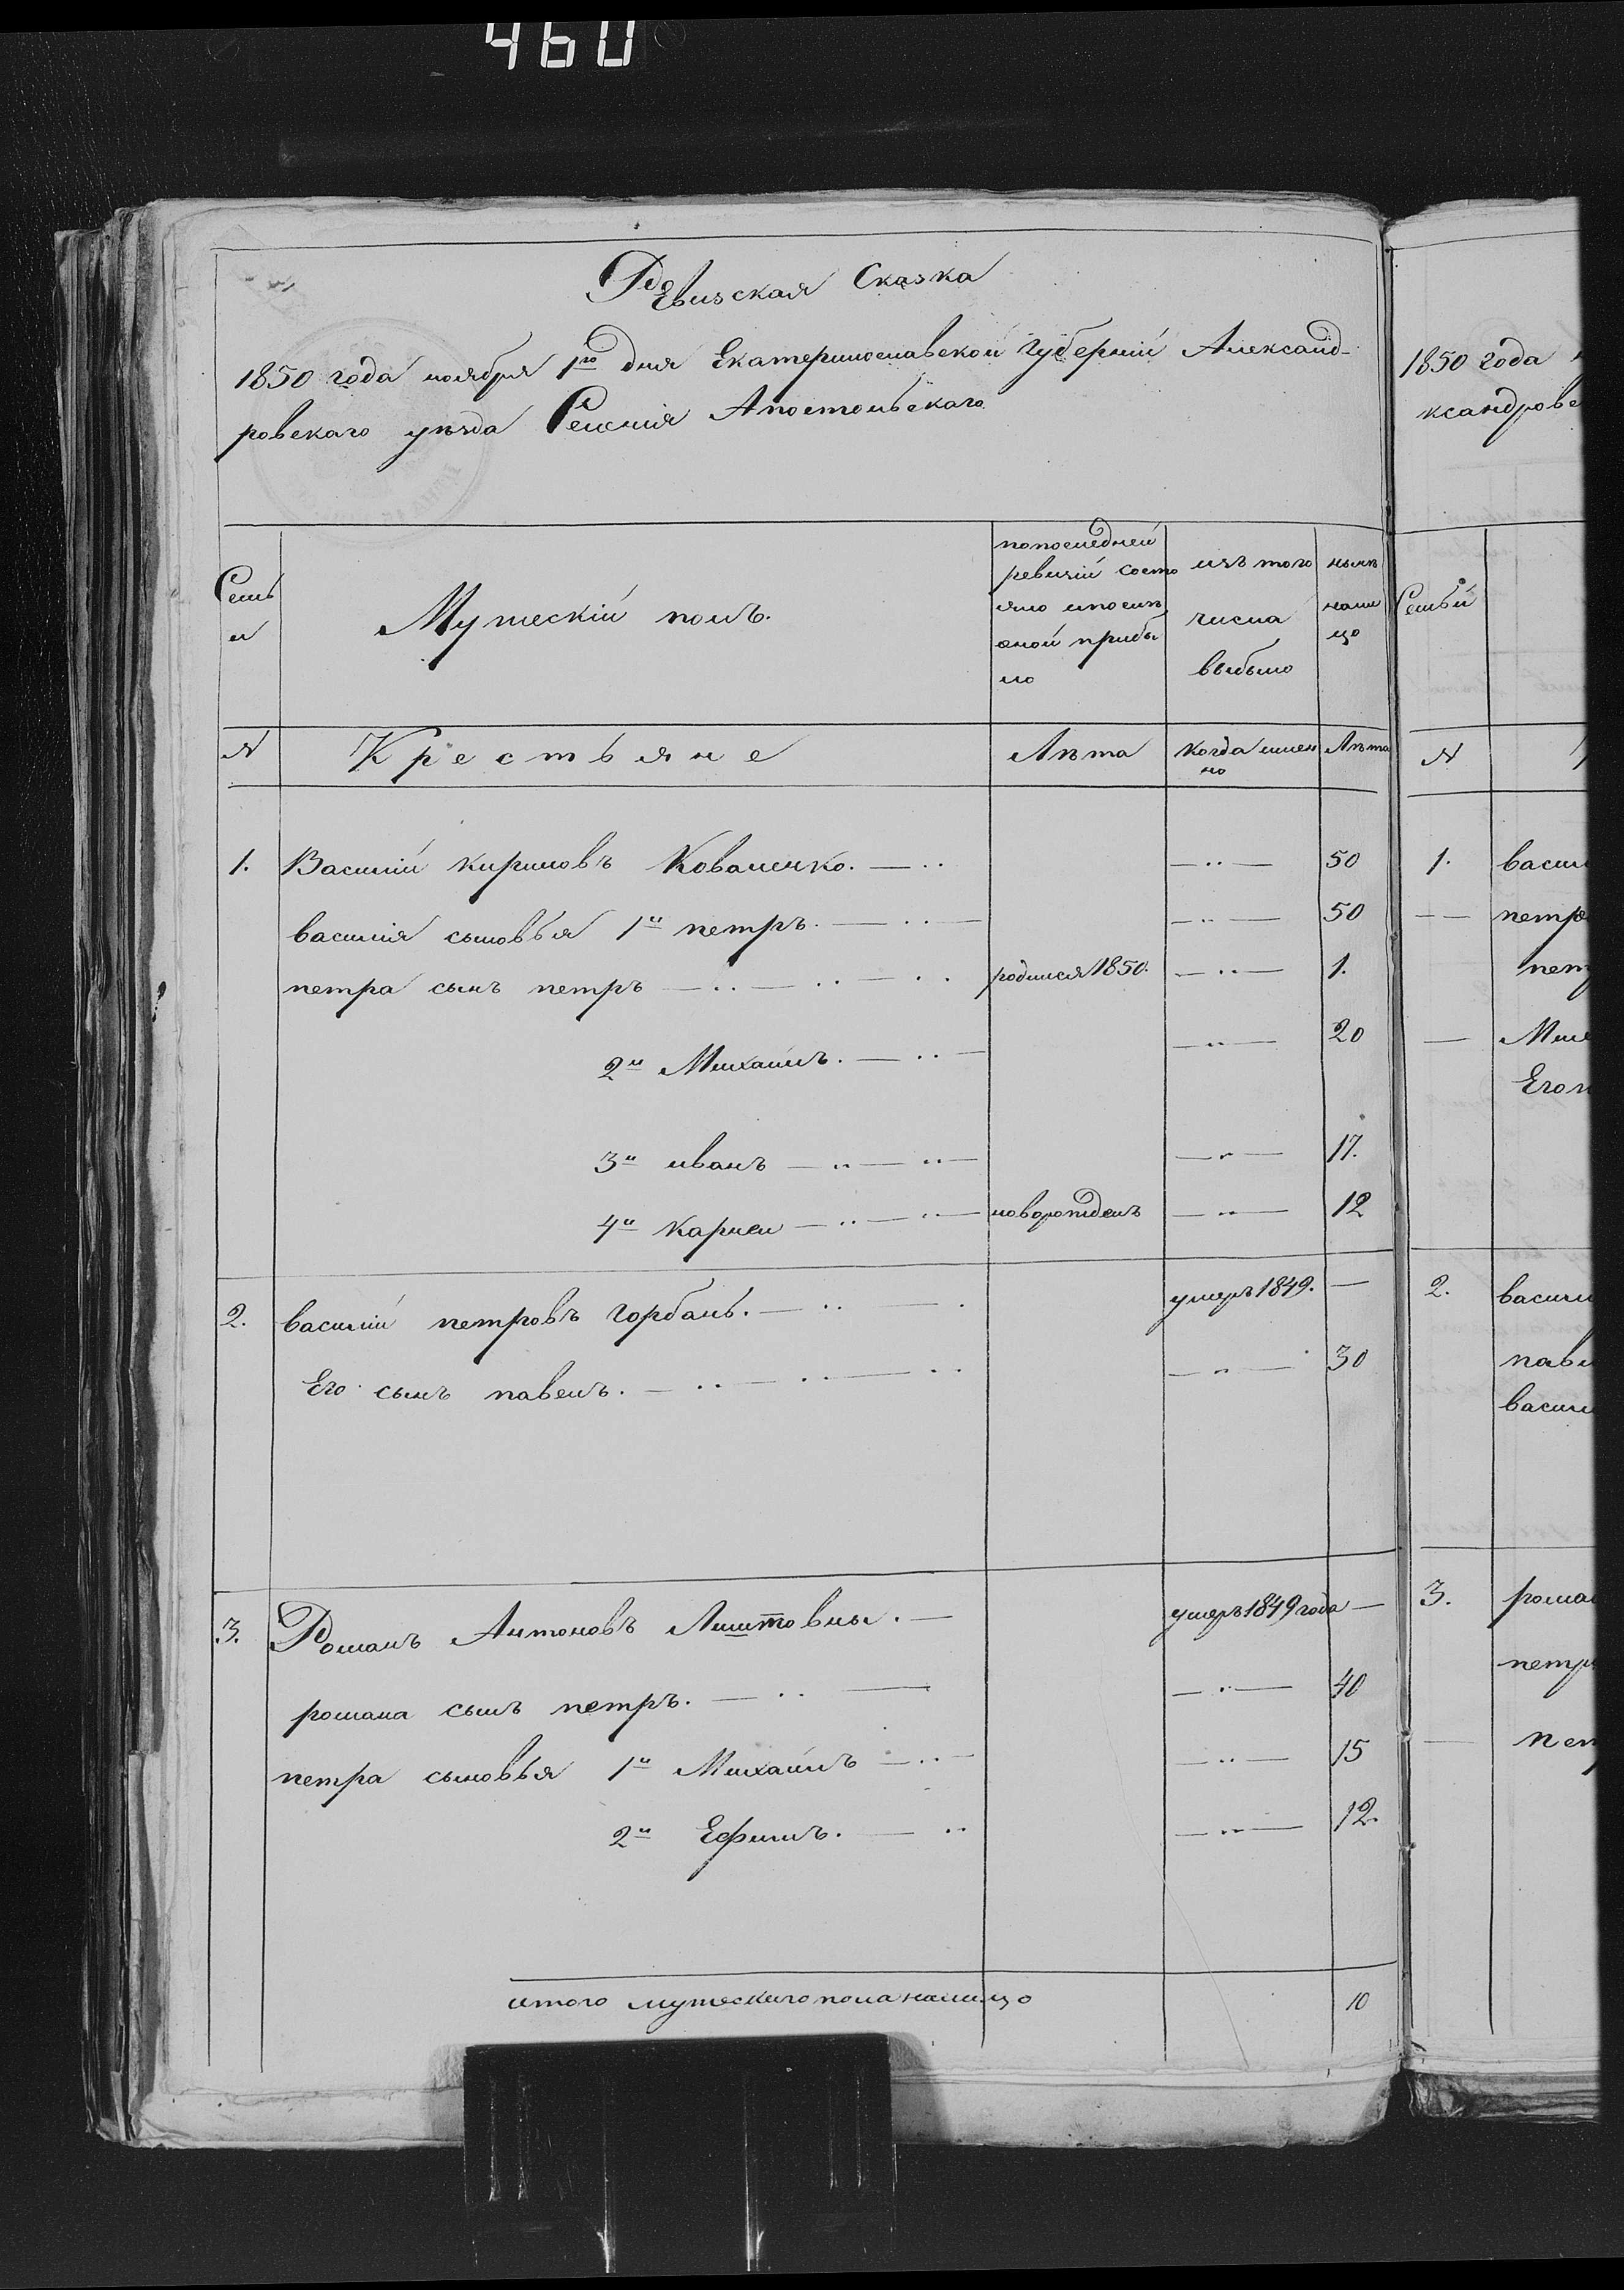 460
Ревизская Сказка
1850 года ноября 1го дня Екатеринославской губерніи Александ-
ровскаго уезда Селенія Апостольскаго
Семь
и
Мужескій полъ.
попоследней
ревизіи состо
яло ипослѣ
оной прибы
ло
изъ того
числа
выбыло
нынѣ
нали
цо
№ Крестьяне Лѣта Когда имен
но Лѣта
1. Василій кириловъ Коваленко. — .. — .. — 50
василія сыновья 1й петръ. — .. — — .. — 50
петра сынъ петръ — .. — .. — .. родился 1850. — .. — 1.
2й Михаилъ. — .. — — .. — 20
3й иванъ — .. — .. — — .. — 17.
4й Карнеи — .. — .. — новорожденъ — .. — 12
2. василіи петровъ горбань. — .. — . умеръ 1849. —
Его сынъ павелъ. — .. — .. — .. — .. — 30
3. Романъ Антоновъ . — умеръ 1849 года —
романа сынъ петръ. — .. — — .. — 40
петра сыновья 1й Михаилъ — .. — — .. — 15
2й Ефимъ. — .. — .. — 12.
итого мужескаго пола налицо 10
1850 года
ксандровс
Семьи
№
1. васил
— петр
пет
— Мих
Его
2. васили
павл
васил
3. рома
петр
— пет